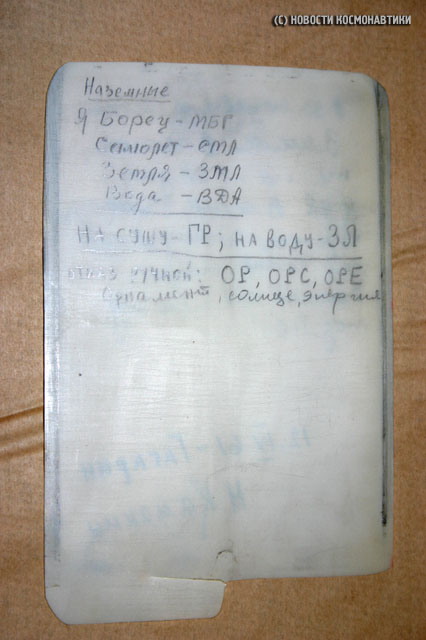 (С) НОВОСТИ КОСМОНАВТИКИ
Наземные
Я Борец - МБГ
Самолет - СМЛ
Земля - ЗМЛ
Вода - ВДА
НА СУШУ - ГР; НА ВОДУ - ЗЛ
ручной: ОР, ОРС, ОРЕ
солнце, энергия